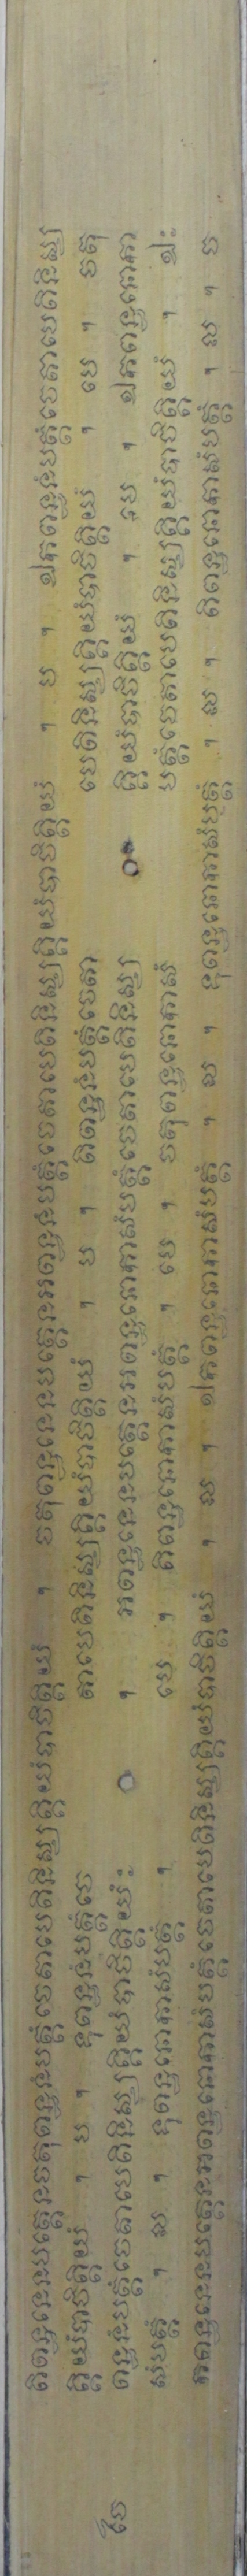 តិពន្ធនេនបត្តេនចតុពន្ធនំបត្តំចេតាបេតិនិស្សគ្គិយំបាចិត្តិយំ ។ ចតុពន្ធនេនបត្តេនអពន្ធនំបត្តំចេតាបេតិនិស្សគ្គិយំបាចិត្តិយំ ។ ប ។ ឯកពន្ធនំបត្តំចេតាបេតិនិស្ស
គ្គិយំបាចិត្តិយំ ។ ប ។ ទុពន្ធនំបត្តំចេ តាបេតិនិស្សគ្គិយំបាចិត្តិយំ ។ ប ។ តិពន្ធនំបត្តំចេតា បេតិនិស្សគ្គិយំបាចិត្តិយំ ។ បេ ។ ចតុ
ពន្ធនំបត្តំចេតាបេតិនិស្សគ្គិយំបាចិត្តិយំៈ ។ អពន្ធនេនបត្តេនអពន្ធនោកាសំបត្តំចេតាបេតិនិស្ស គ្គិយំបាចិត្តិយំ ។ ប ។ ឯកពន្ធនោកា
សំបត្តំ ។ ល ។ ទុពន្ធនោកាសំបត្តំ ។ បេ ។ តិពន្ធនោកាសំបត្តំ ។ បេ ។ ចតុពន្ធនោកាសំ បត្តំចេតាបេតិនិស្សគ្គិយំបាចិត្តិយំ ។ ឯៈ
កពន្ធនេនបត្តេនអពន្ធនោកាសំបត្តំចេតាបេតិនិស្សគ្គិយំបាចិត្តិយំ ។ ល ។ ឯកពន្ធនោកាសំបត្តំ ។ ល ។ ទុពន្ធនោកាសំបត្តំ ។ ល ។ តិពន្ធនោកាសំបត្តំ ។ ល ។ ច